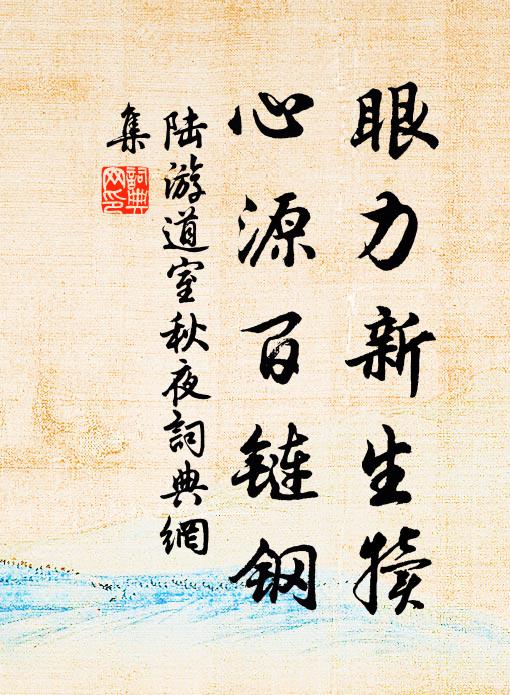 眼力新生犊
心源百链钢
陆游道室秋夜詞典網
集
詞典网印